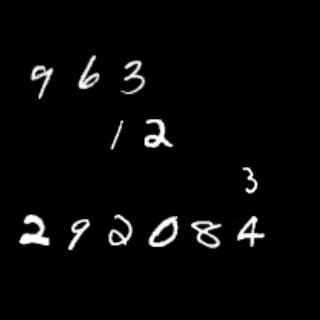 963
12
3
292084